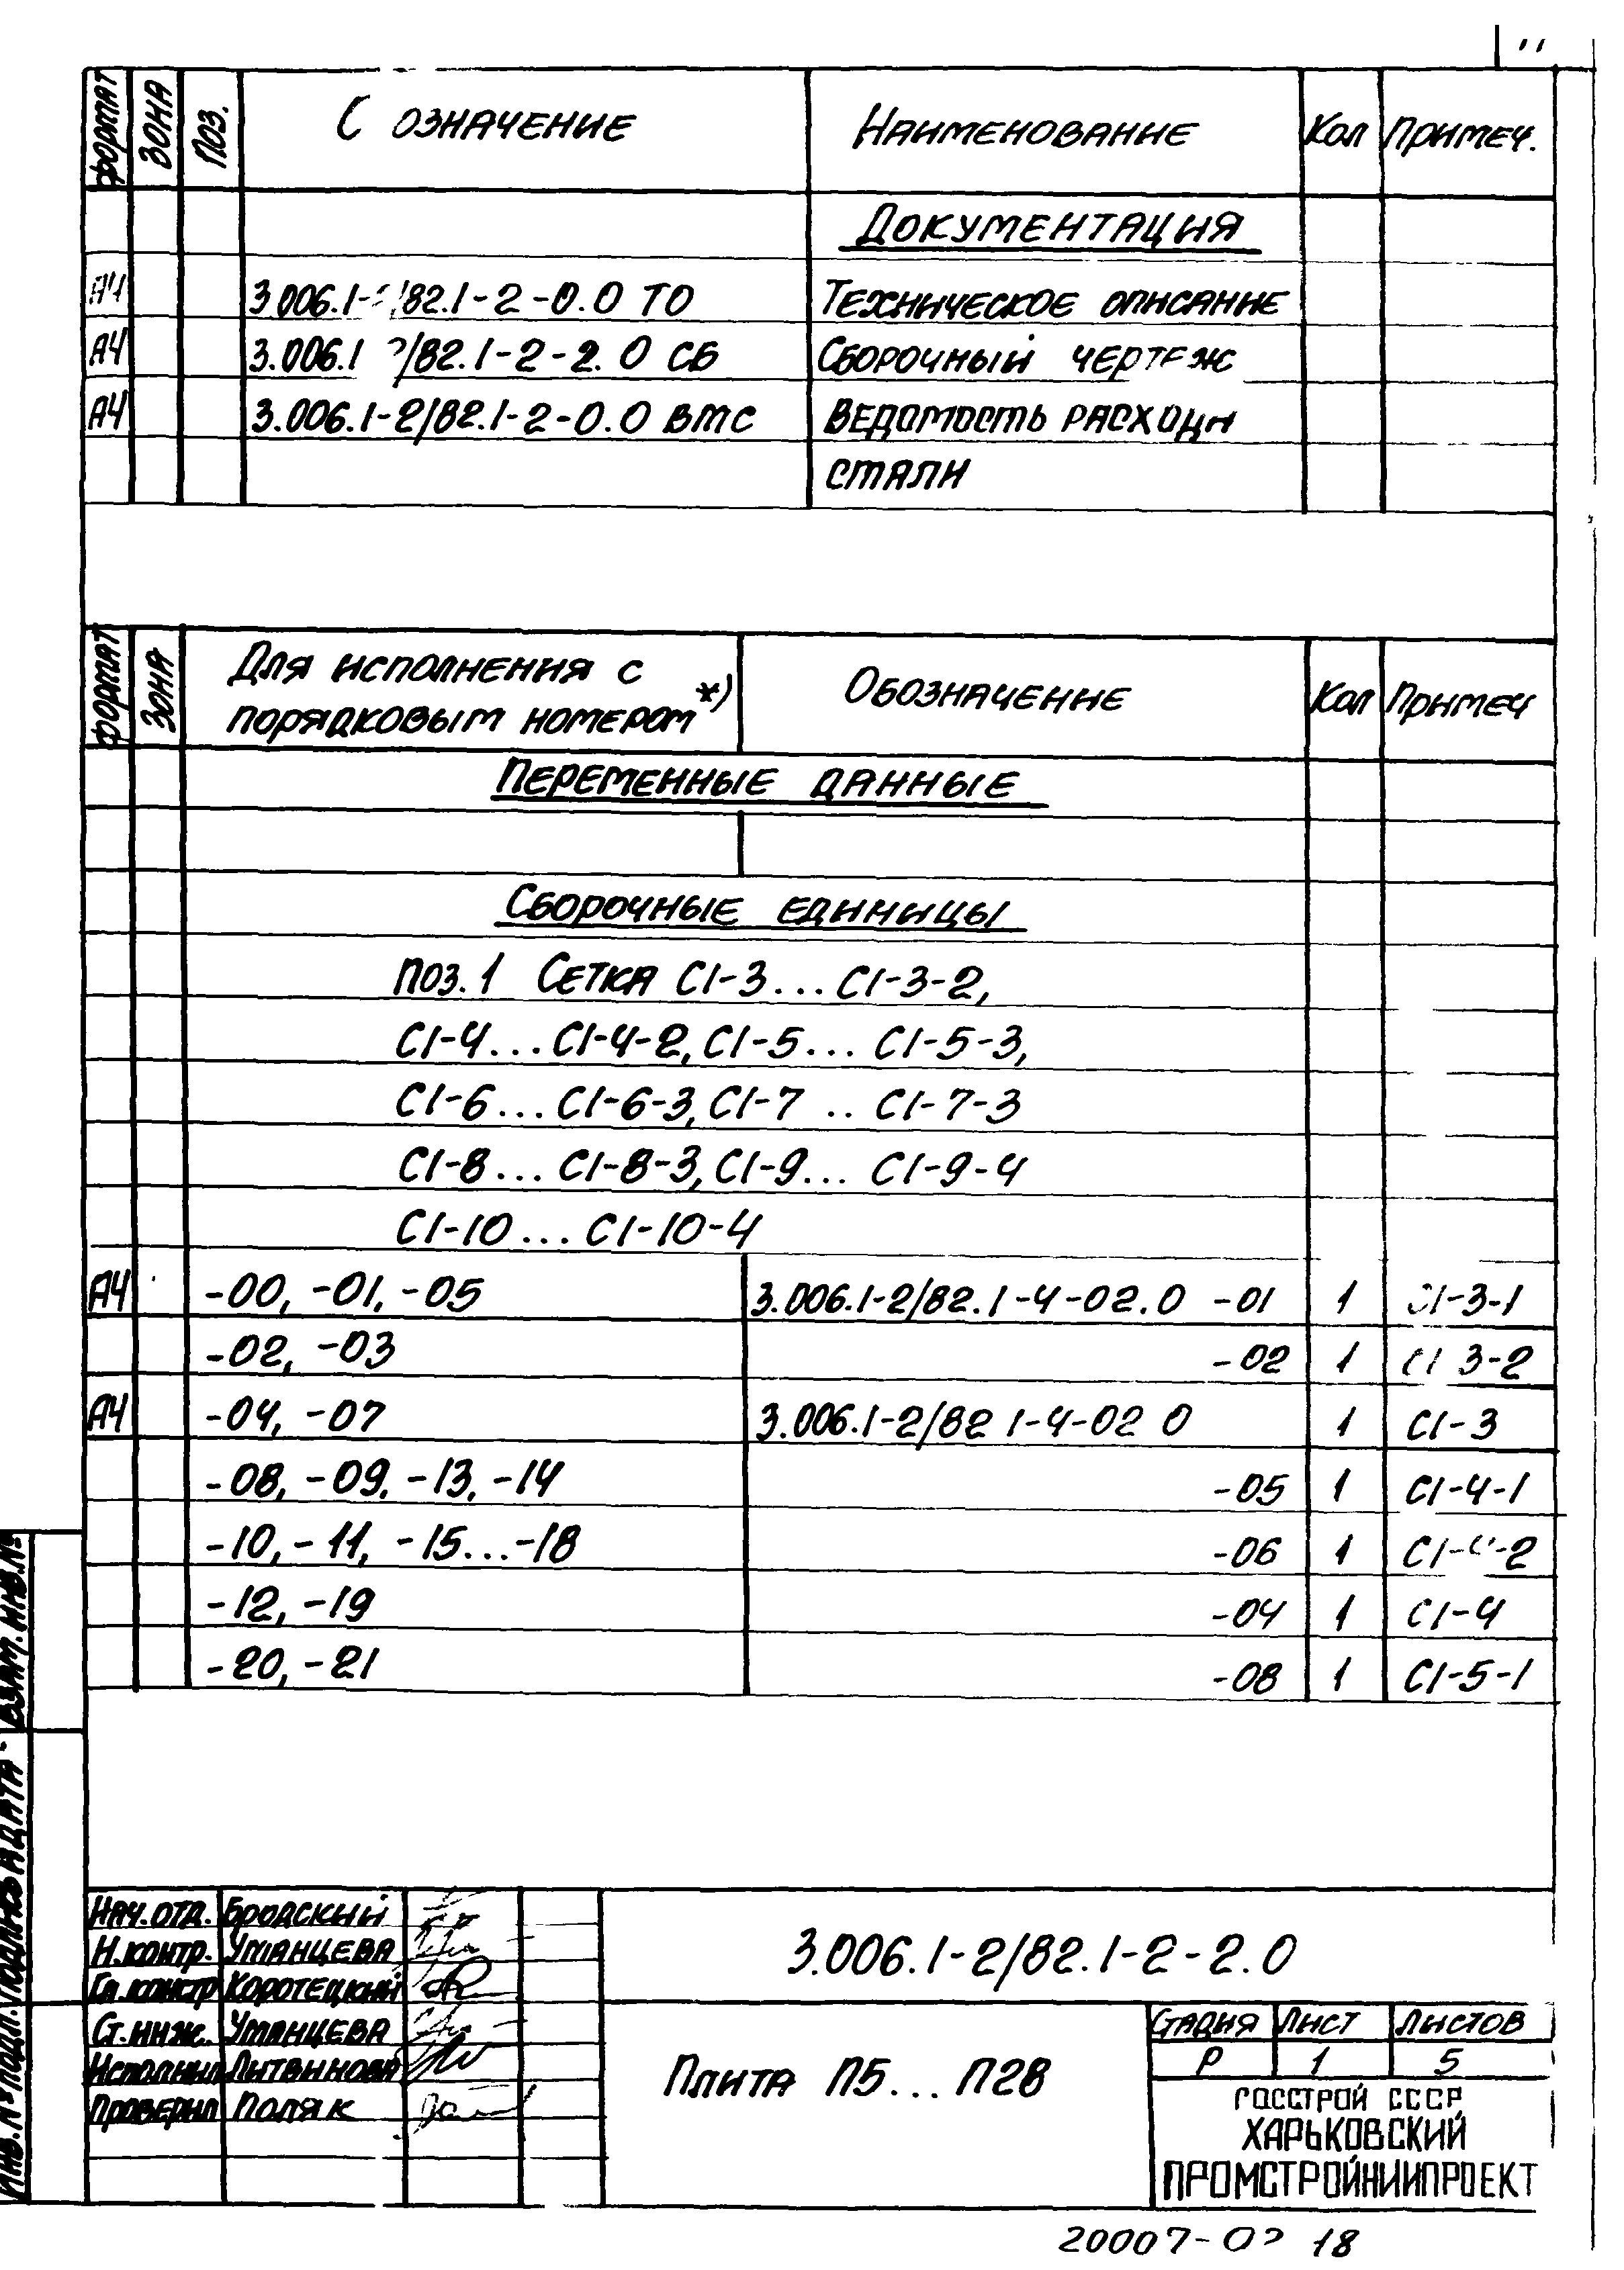 Формат Зона Поз. С означение Наименование Кол Примеч.
Документация
А4 3.006.1-2/82.1-2-0.0 ТО Техническое описание
А4 3.006.1 2/82.1-2-2.0 СБ Сборочный чертеж
А4 3.006.1-2/82.1-2-0.0 ВМС Ведомость расходи
стали
Формат Зона Для исполнения с Обозначение Кол Примеч
порядковым номером*)
Переменные данные
Сборочные единицы
Поз.1 Сетка С1-3...С1-3-2,
С1-4...С1-4-2, С1-5... С1-5-3,
С1-6...С1-6-3, С1-7 .. С1-7-3
С1-8...С1-8-3, С1-9... С1-9-4
С1-10...С1-10-4
А4 -00, -01, -05 3.006.1-2/82.1-4-02.0 -01 1 С1-3-1
-02, -03 -02 1 С1 3-2
А4 -04, -07 3.006.1-2/82 1-4-02 0 1 С1-3
-08, -09, -13, -14 -05 1 С1-4-1
-10, -11, -15...-18 -06 1 С1-4-2
-12, -19 -04 1 С1-4
-20, -21 -08 1 С1-5-1
Взам. инв. №
Подпись и дата
Инв. № подл.
Нач. отд. Бродский
Н. контр. Уманцева
Гл. констр Коротецкий
Ст. инж. Уманцева
Исполнил Литвинова
Проверил Поляк
3.006.1-2/82.1-2-2.0
Плита П5...П28
Стадия Лист Листов
Р 1 5
Госстрой СССР
ХАРЬКОВСКИЙ
ПРОМСТРОЙНИИПРОЕКТ
20007-0? 18